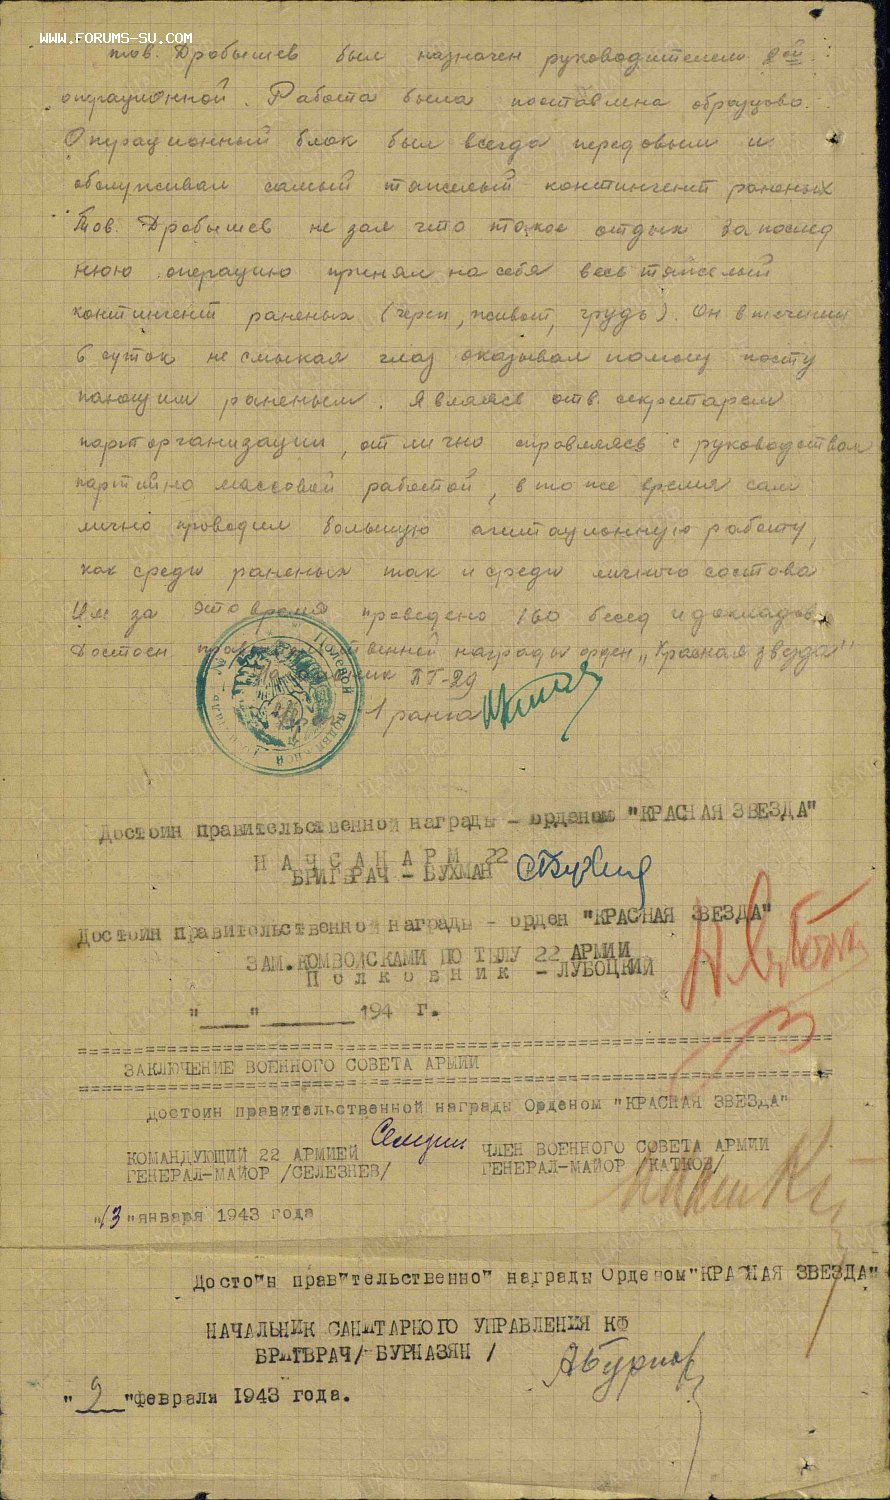 www.forums-su.com
тов. Дробышев был назначен руководителем 2ой
операционной. Работа была поставлена образцово.
Операционный блок был всегда передовым и
обслуживал самый тяжелый контингент раненых
Тов. Дробышев не зал что такое отдых За послед
нюю операцию принял на себя весь тяжелый
контингент раненых (череп, живот, грудь). Он в течении
6 суток не смыкая глаз оказывал помощ посту
пающим раненым. Являясь отв. секретарем
парторганизации, отлично справляясь с руководством
партийно массовой работой, в то же время сам
лично проводил большую агитационную работу,
как среди раненых так и среди личного состава
Им за это время проведено 160 бесед и докладов
Достоен правительственной награды орден „Красная звезда"
Начальник ПГ-29
1 ранга
Достоин правительственной награды - орденом "КРАСНАЯ ЗВЕЗДА"
НАЧСАНАРМ 22
БРИГВРАЧ - БУХМАН
Достоин правительственной награды - орден "КРАСНАЯ ЗВЕЗДА"
ЗАМ.КОМВОЙСКАМИ ПО ТЫЛУ 22 АРМИИ
Полковник - ЛУБОЦКИЙ
"___"_______194 г.
ЗАКЛЮЧЕНИЕ ВОЕННОГО СОВЕТА АРМИИ
Достоин правительственной награды Орденом "КРАСНАЯ ЗВЕЗДА"
КОМАНДУЮЩИЙ 22 АРМИЕЙ ЧЛЕН ВОЕННОГО СОВЕТА АРМИИ
ГЕНЕРАЛ-МАЙОР /СЕЛЕЗНЕВ/ ГЕНЕРАЛ-МАЙОР /КАТКОВ/
"13" января 1943 года
Досто"н прав"тельственно" награды Орденом "КРАСНАЯ ЗВЕЗДА"
НАЧАЛЬНИК САНИТАРНОГО УПРАВЛЕНИЯ КФ
БРИГВРАЧ/-БУРНАЗЯН /
"9" февраля 1943 года.